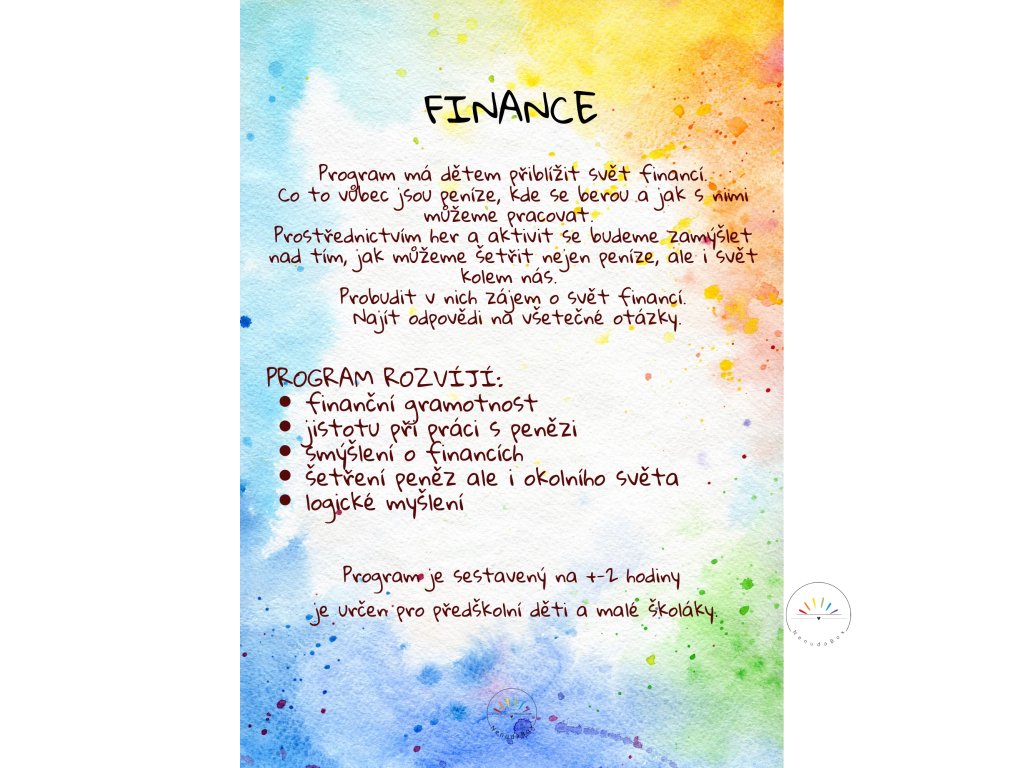 FINANCE
Program má dětem přiblížit svět financí.
Co to vůbec jsou peníze, kde se berou a jak s nimi
můžeme pracovat.
Prostřednictvím her a aktivit se budeme zamýšlet
nad tím, jak můžeme šetřit nejen peníze, ale i svět
kolem nás.
Probudit v nich zájem o svět financí.
Najít odpovědi na všetečné otázky.
PROGRAM ROZVÍJÍ:
● finanční gramotnost
● jistotu při práci s penězi
● smýšlení o financích
● šetření peněz ale i okolního světa
● logické myšlení
Program je sestavený na +-2 hodiny
je určen pro předškolní děti a malé školáky.
NenudaBox
NenudaBox